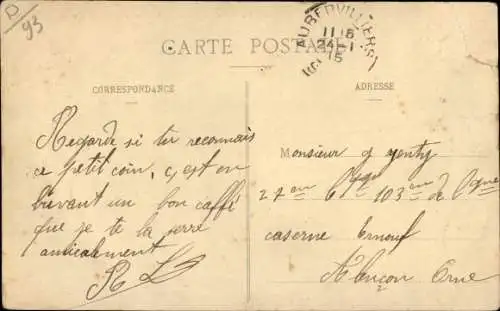 D
93
CARTE POSTALE
AUBERVILLIERS
11 15
24-1
15
CORRESPONDANCE
ADRESSE
Regarde si tu reconnais
ce petit coin, c'est en
buvant un bon caffé
que je te la serre
amicalement
R L
Monsieur g genty
27 em 6 103 em de ligne
caserne Ernouf
Alençon Orne